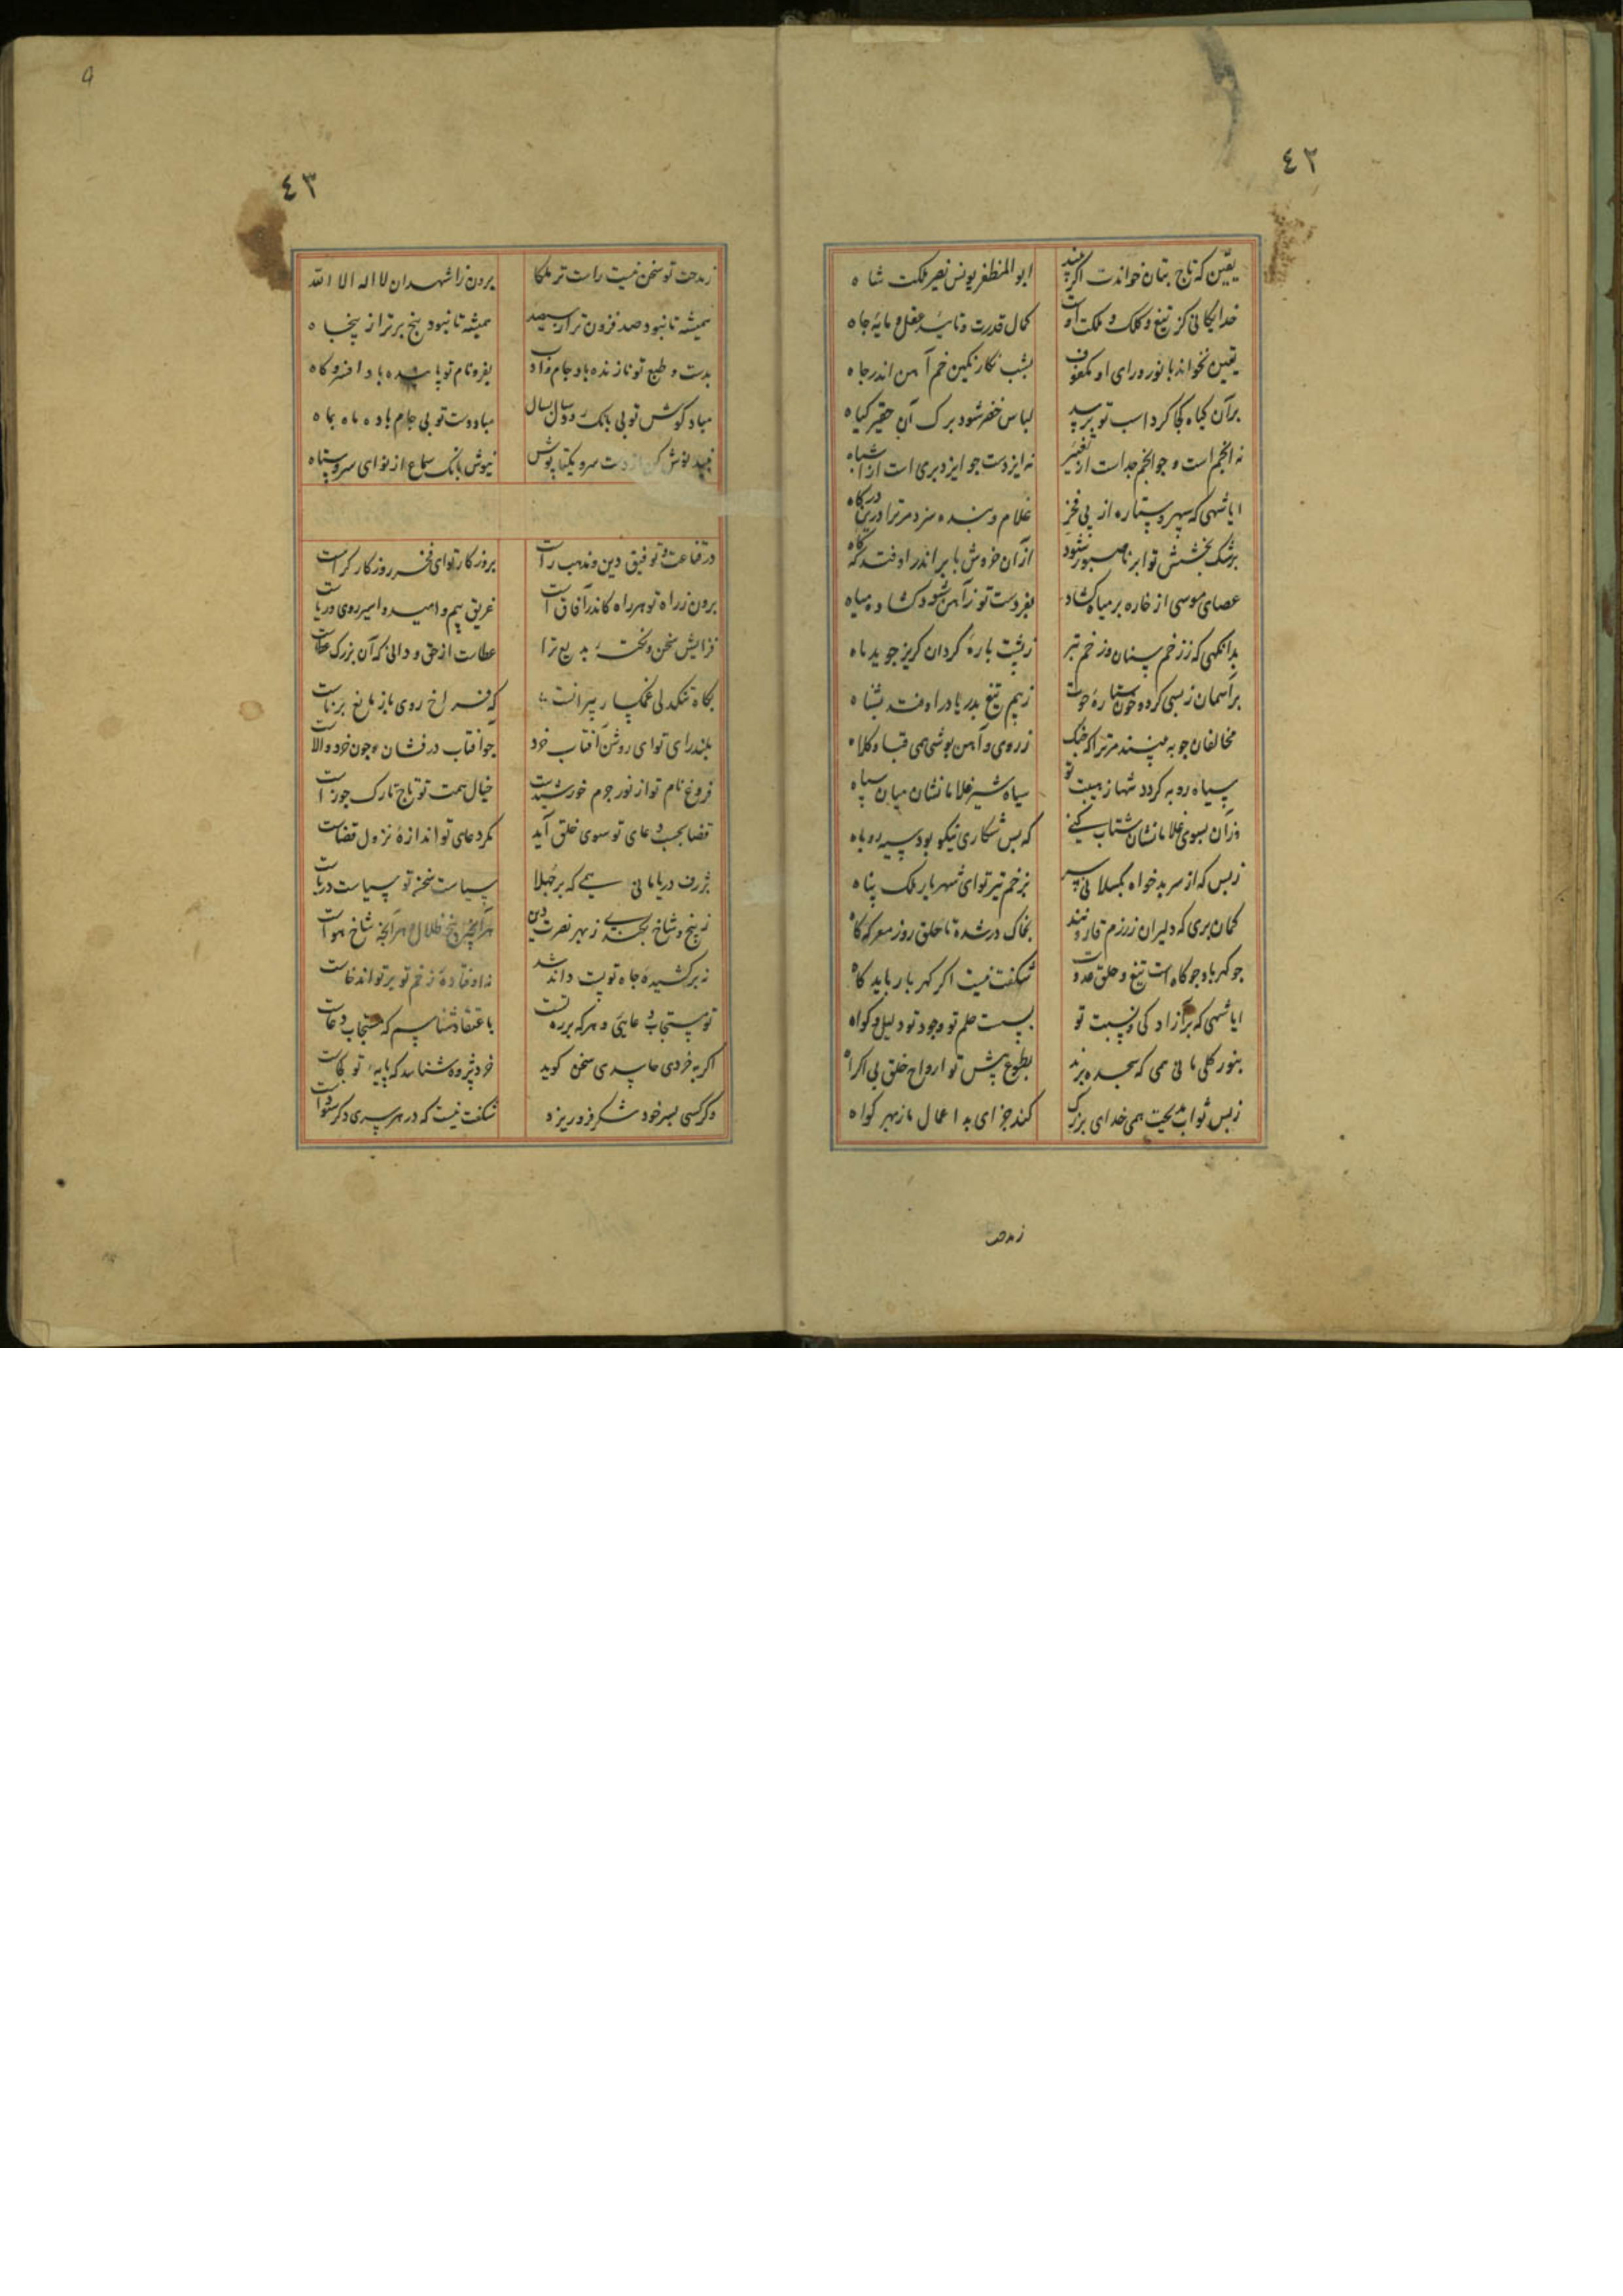 ٤٢
یقین که تاج بتان خواندت اکر بیند ابوالمظفر یونس نصیر ملکت شاه
خدایکانی کز تیغ و کلک و ملکت اوست کمال قدرت و تائید عقل و مایهٔ جاه
یقین نخواند با نور رای او مکفوف بشب نکار نکین خم آهن اندر چاه
برآن کیاه کجا کرد اسب تو برسد لباس خضر شود برک آن حقیر کیاه
نه انجم است و جو انجم جداست از تغییر نه ایزدست جو ایزد بری است از اشباه
ایا شهی که سپهر و ستاره از پی فخر غلام و بنده سزد مر ترا درین درکاه
برشک بخشش تو ابر ناصبور شود ازآن خروش بابر اندر اوفتد که کاه
عصای موسی از خاره بر میاه کشاد بفر دست تو زآهن شود کشاده میاه
بدانکهی که ززخم سنان وز خم تبر زپشت بارهٔ کردان کریز جوید ماه
برآسمان زبسی کرده خون ستاره حوت زبیم تیغ بدریا در اوفتد بشناه
مخالفان جو به بینند مر ترا که جنک زروی و آهن بوشی همی قبا و کلاه
سیاه روبه کردد شها زهیبت تو سیاه شیر غلامانشان میان سپاه
وزآن بسوی غلامانشان شتاب کنی که بس شکاری نیکو بود سیه روباه
زبس که از سر بدخواه بکسلانی سر بزخم تیر تو ای شهریار ملک پناه
کمان بری که دلیران زرزم قارونند بخاک در شده تا حلق روز معرکه کاه
جو کهربا و جو کاه است تیغ و حلق عدوت شکفت نیست اکر کهربا رباید کاه
ایا شهی که بر آزاد کی و نسبت تو بسست حلم تو و جود تو دلیل و کواه
بنور کلی مانی همی که سجده برند بطوع پیش تو ارواح خلق بی اکراه
زبس ثواب مدیحت همی خدای بزرک کند جزای بد اعمال ما زمهر کواه
زمدحت
٤٣
زمدحت تو سخن نیست راست تر ملکا برون زاشهد ان لا اله الا الله
همیشه تا نبود صد فزون تر از سیصد همیشه تا نبود پنج برتر از پنجاه
بدست و طبع تو نازنده باد جام و ادب بفر و نام تو پاینده باد افسر و کاه
مباد کوش تو بی بانک رود سال بسال مباد دست تو بی جام باده ماه بماه
نبید نوش کن از دست سرو یکتا پوش نیوش بانک سماع از نوای سرو ستاه
در قناعت و توفیق دین و مذهب راست بروزکار تو ای فخر روزکار کراست
برون زراه تو هر راه کاندر آفاق است غریق بیم و امید و اسیر روی و ریاست
فزایش سخن و نکتهٔ بدیع ترا عطاست از حق و دانی که آن بزرک عطاست
بکاه تنکدلی غمکسار پیرانست که فراخ روی باز مانع برناست
بلند رای تو ای روشن آفتاب خرد جو آفتاب درفشان و جون خرد والاست
فروغ نام تو از نور جرم خورشیدست خیال همت تو تاج تارک جوزاست
قضا بحسب دعای تو سوی خلق آید مکر دعای تو اندازهٔ نزول قضاست
بژرف دریا مانی همی که بر جهلا سیاست سخن تو سیاست دریاست
زبیخ و شاخ بجنبد زبهر نصرت دین هرآنجه بیخ ظلال و هرآنجه شاخ هواست
نه برکشیدهٔ جاه تو پست داند شد نه اوفتادهٔ زخم تو بر تواند خاست
تو مستجاب دعایی و هر که بر ره تست باعتقاد شناسم که مستجاب دعاست
اکر به خردی حاسدی سخن کوید خرد پژوه شناسد که پایهٔ تو کجاست
و کر کسی بسر خود شکر فرو ریزد شکفت نیست که در هر سری دکر سوداست